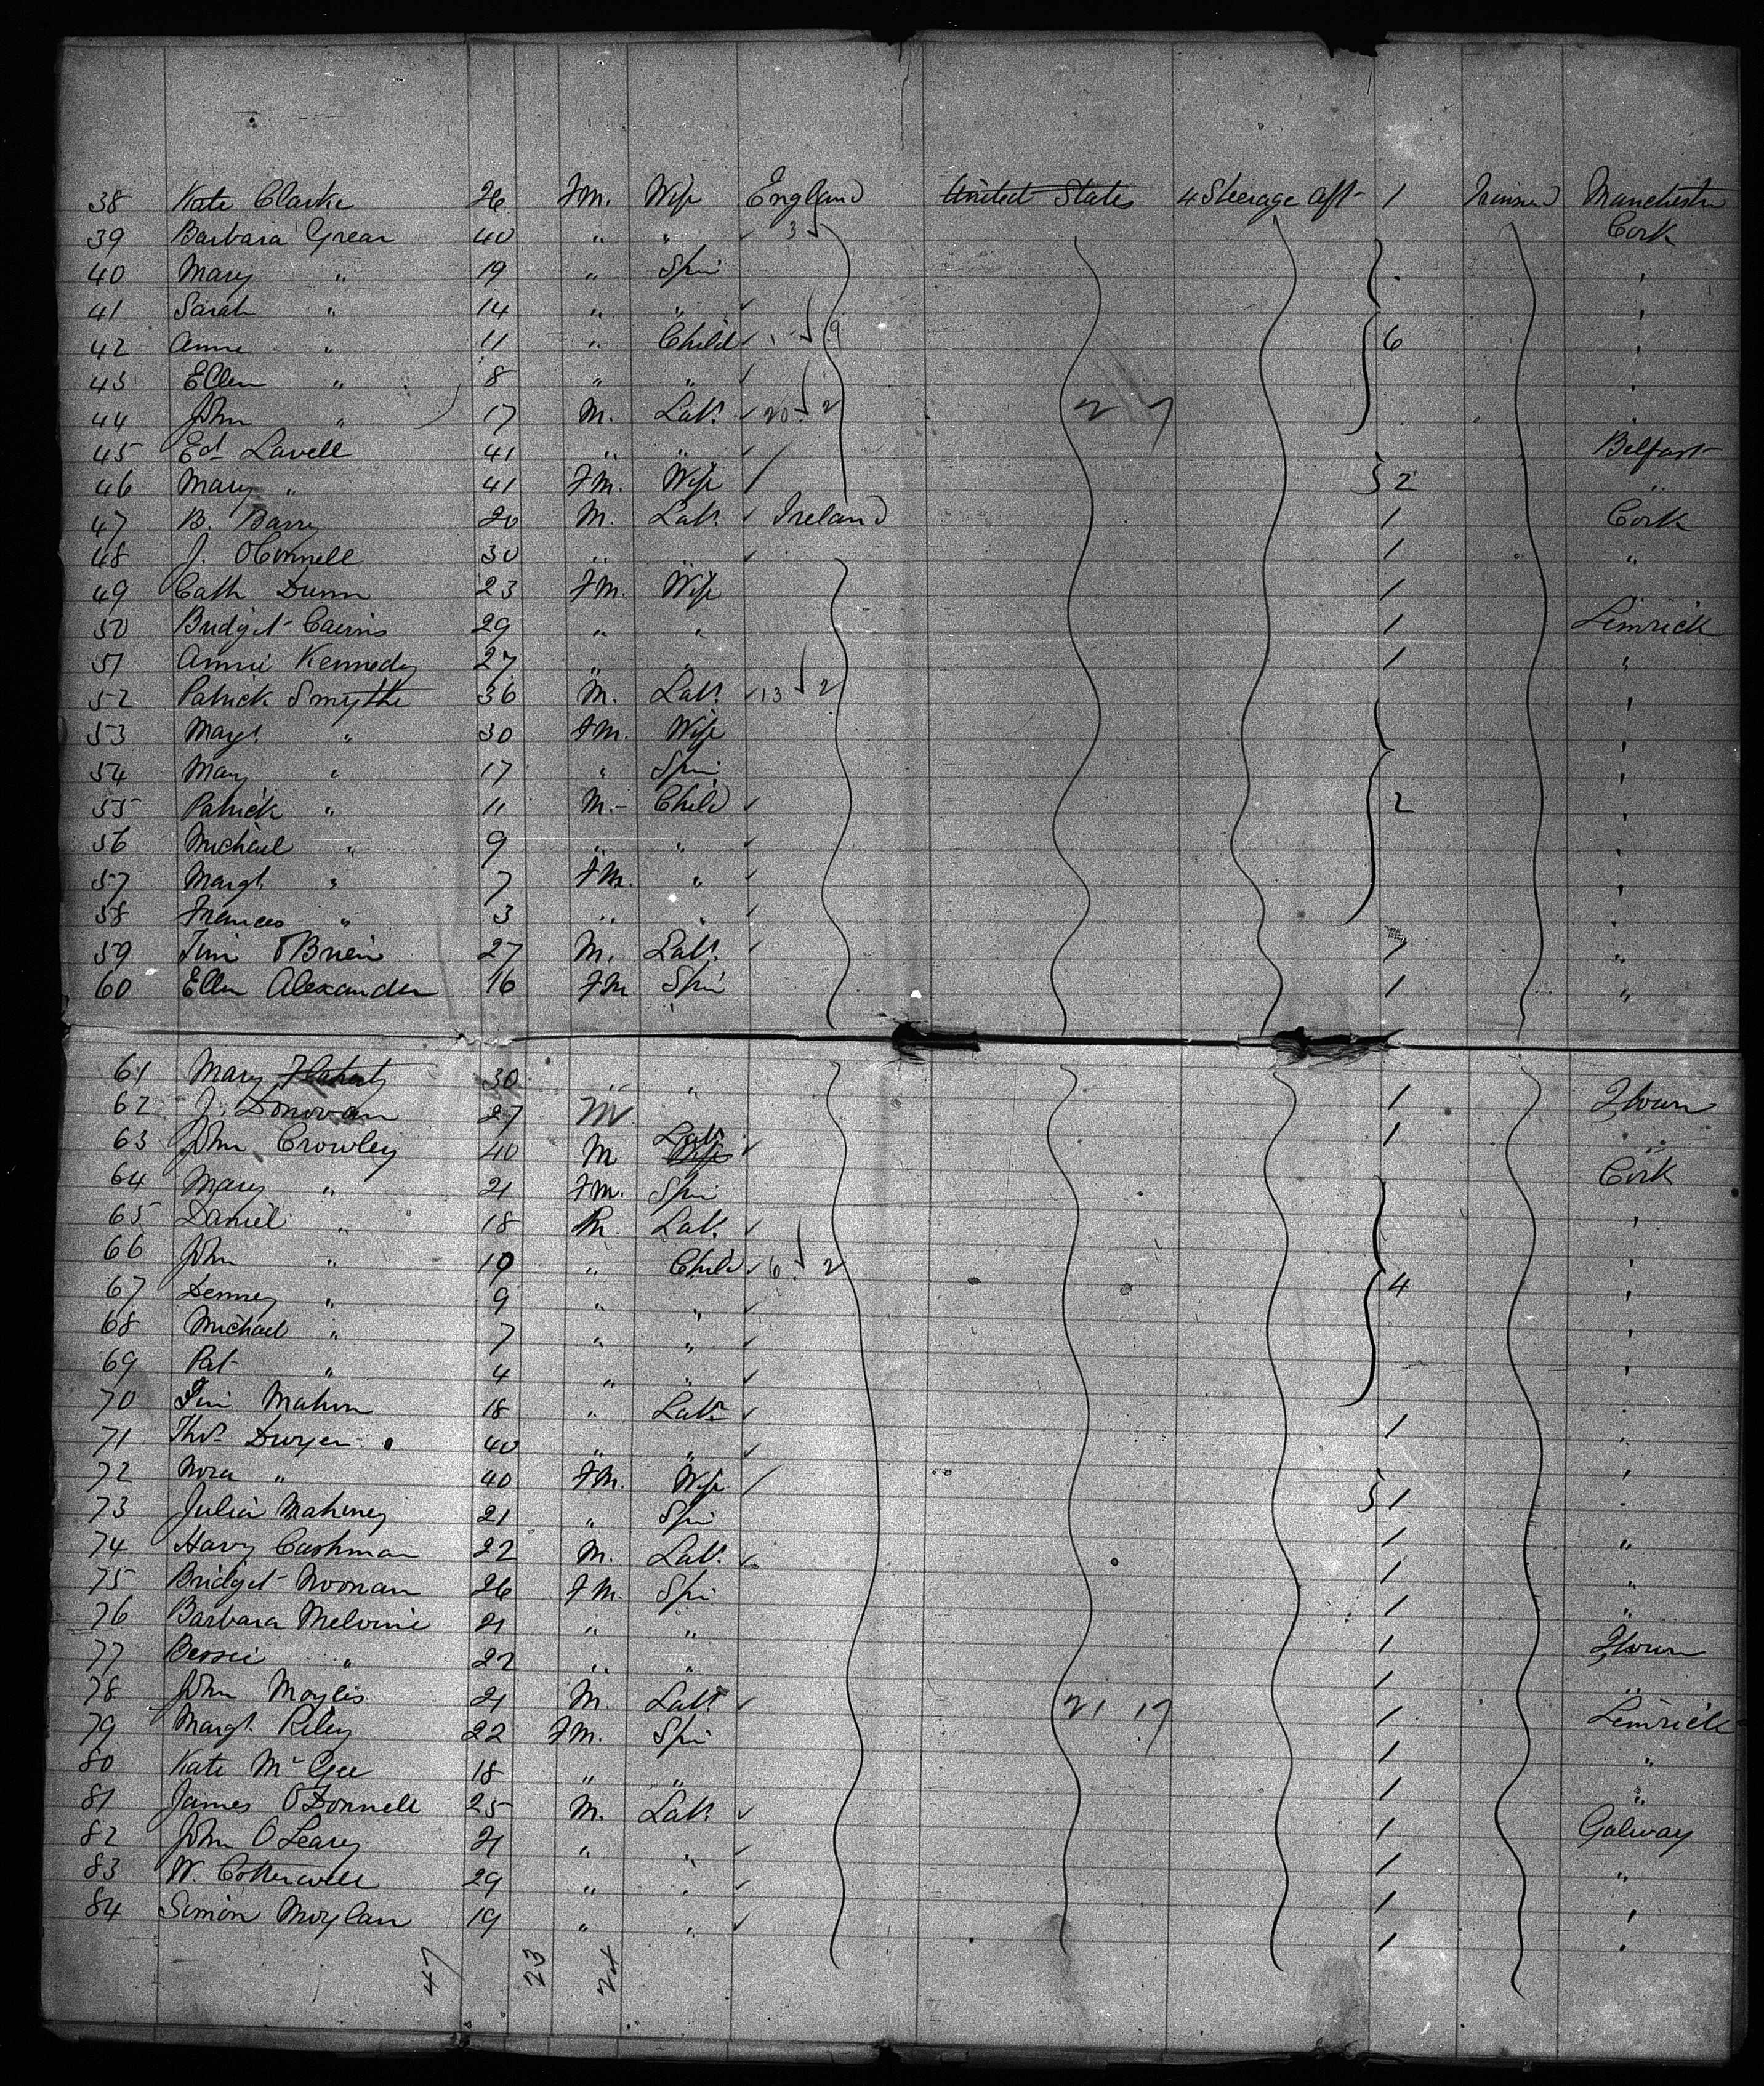 38 Kate Clarke 26 Fm. Wife England United States 4 Steerage Aft 1 Manchester
39 Barbara Grear 40 " " 3 Cork
40 Mary " 19 " Spin "
41 Sarah " 14 " " "
42 Anne " 11 " Child 9 6 "
43 Ellen " 8 " " "
44 John " 17 M. Labr. 20 2 "
45 Ed. Lavell 41 " " Belfast
46 Mary " 41 Fm. Wife 2 "
47 B. Barry 20 M. Labr. Ireland 1 Cork
48 J. OConnell 30 " " 1 "
49 Cath Dunn 23 Fm. Wife 1
50 Bridget Cairns 29 " " 1 Limrick
51 Annie Kennedy 27 " " 1 "
52 Patrick Smythe 36 M. Labr. 13 2 "
53 Margt. " 30 Fm. Wife "
54 Mary " 17 " Spin "
55 Patrick " 11 M. Child 2 "
56 Michael " 9 " " "
57 Margt. " 7 Fm. " "
58 Frances " 3 " " "
59 Tim OBrien 27 M. Labr. "
60 Ellen Alexander 16 Fm Spin 1 "
61 Mary Flaherty 30 " " 1 Thours
62 J. Donovan 27 M 1 "
63 John Crowley 40 M Labr. Wife Cork
64 Mary " 21 Fm. Spin "
65 Daniel " 18 M. Labr. "
66 John " 10 " Child 6 2 "
67 Denney " 9 " " 4 "
68 Michael " 7 " " "
69 Pat " 4 " " "
70 Tim Mahon 18 " Labr. 1 "
71 Thos. Dwyer 40 " " "
72 Nora " 40 Fm. Wife 1 "
73 Julia Mahoney 21 " Spin 1 "
74 Harry Cashman 22 M. Labr. 1 "
75 Bridget Noonan 26 Fm. Spin 1 "
76 Barbara Melvine 21 " " 1 Thours
77 Bessie " 22 " " 1 "
78 John Moyles 21 M. Labr. 21 17 1 Limrick
79 Margt. Riley 22 Fm. Spin 1 "
80 Kate McGee 18 " " 1 "
81 James ODonnell 25 M. Labr. 1 Galway
82 John OLeary 21 " " 1 "
83 W. Cotterwell 29 " " 1 "
84 Simon Moylan 19 " " 1 "
47 23 24